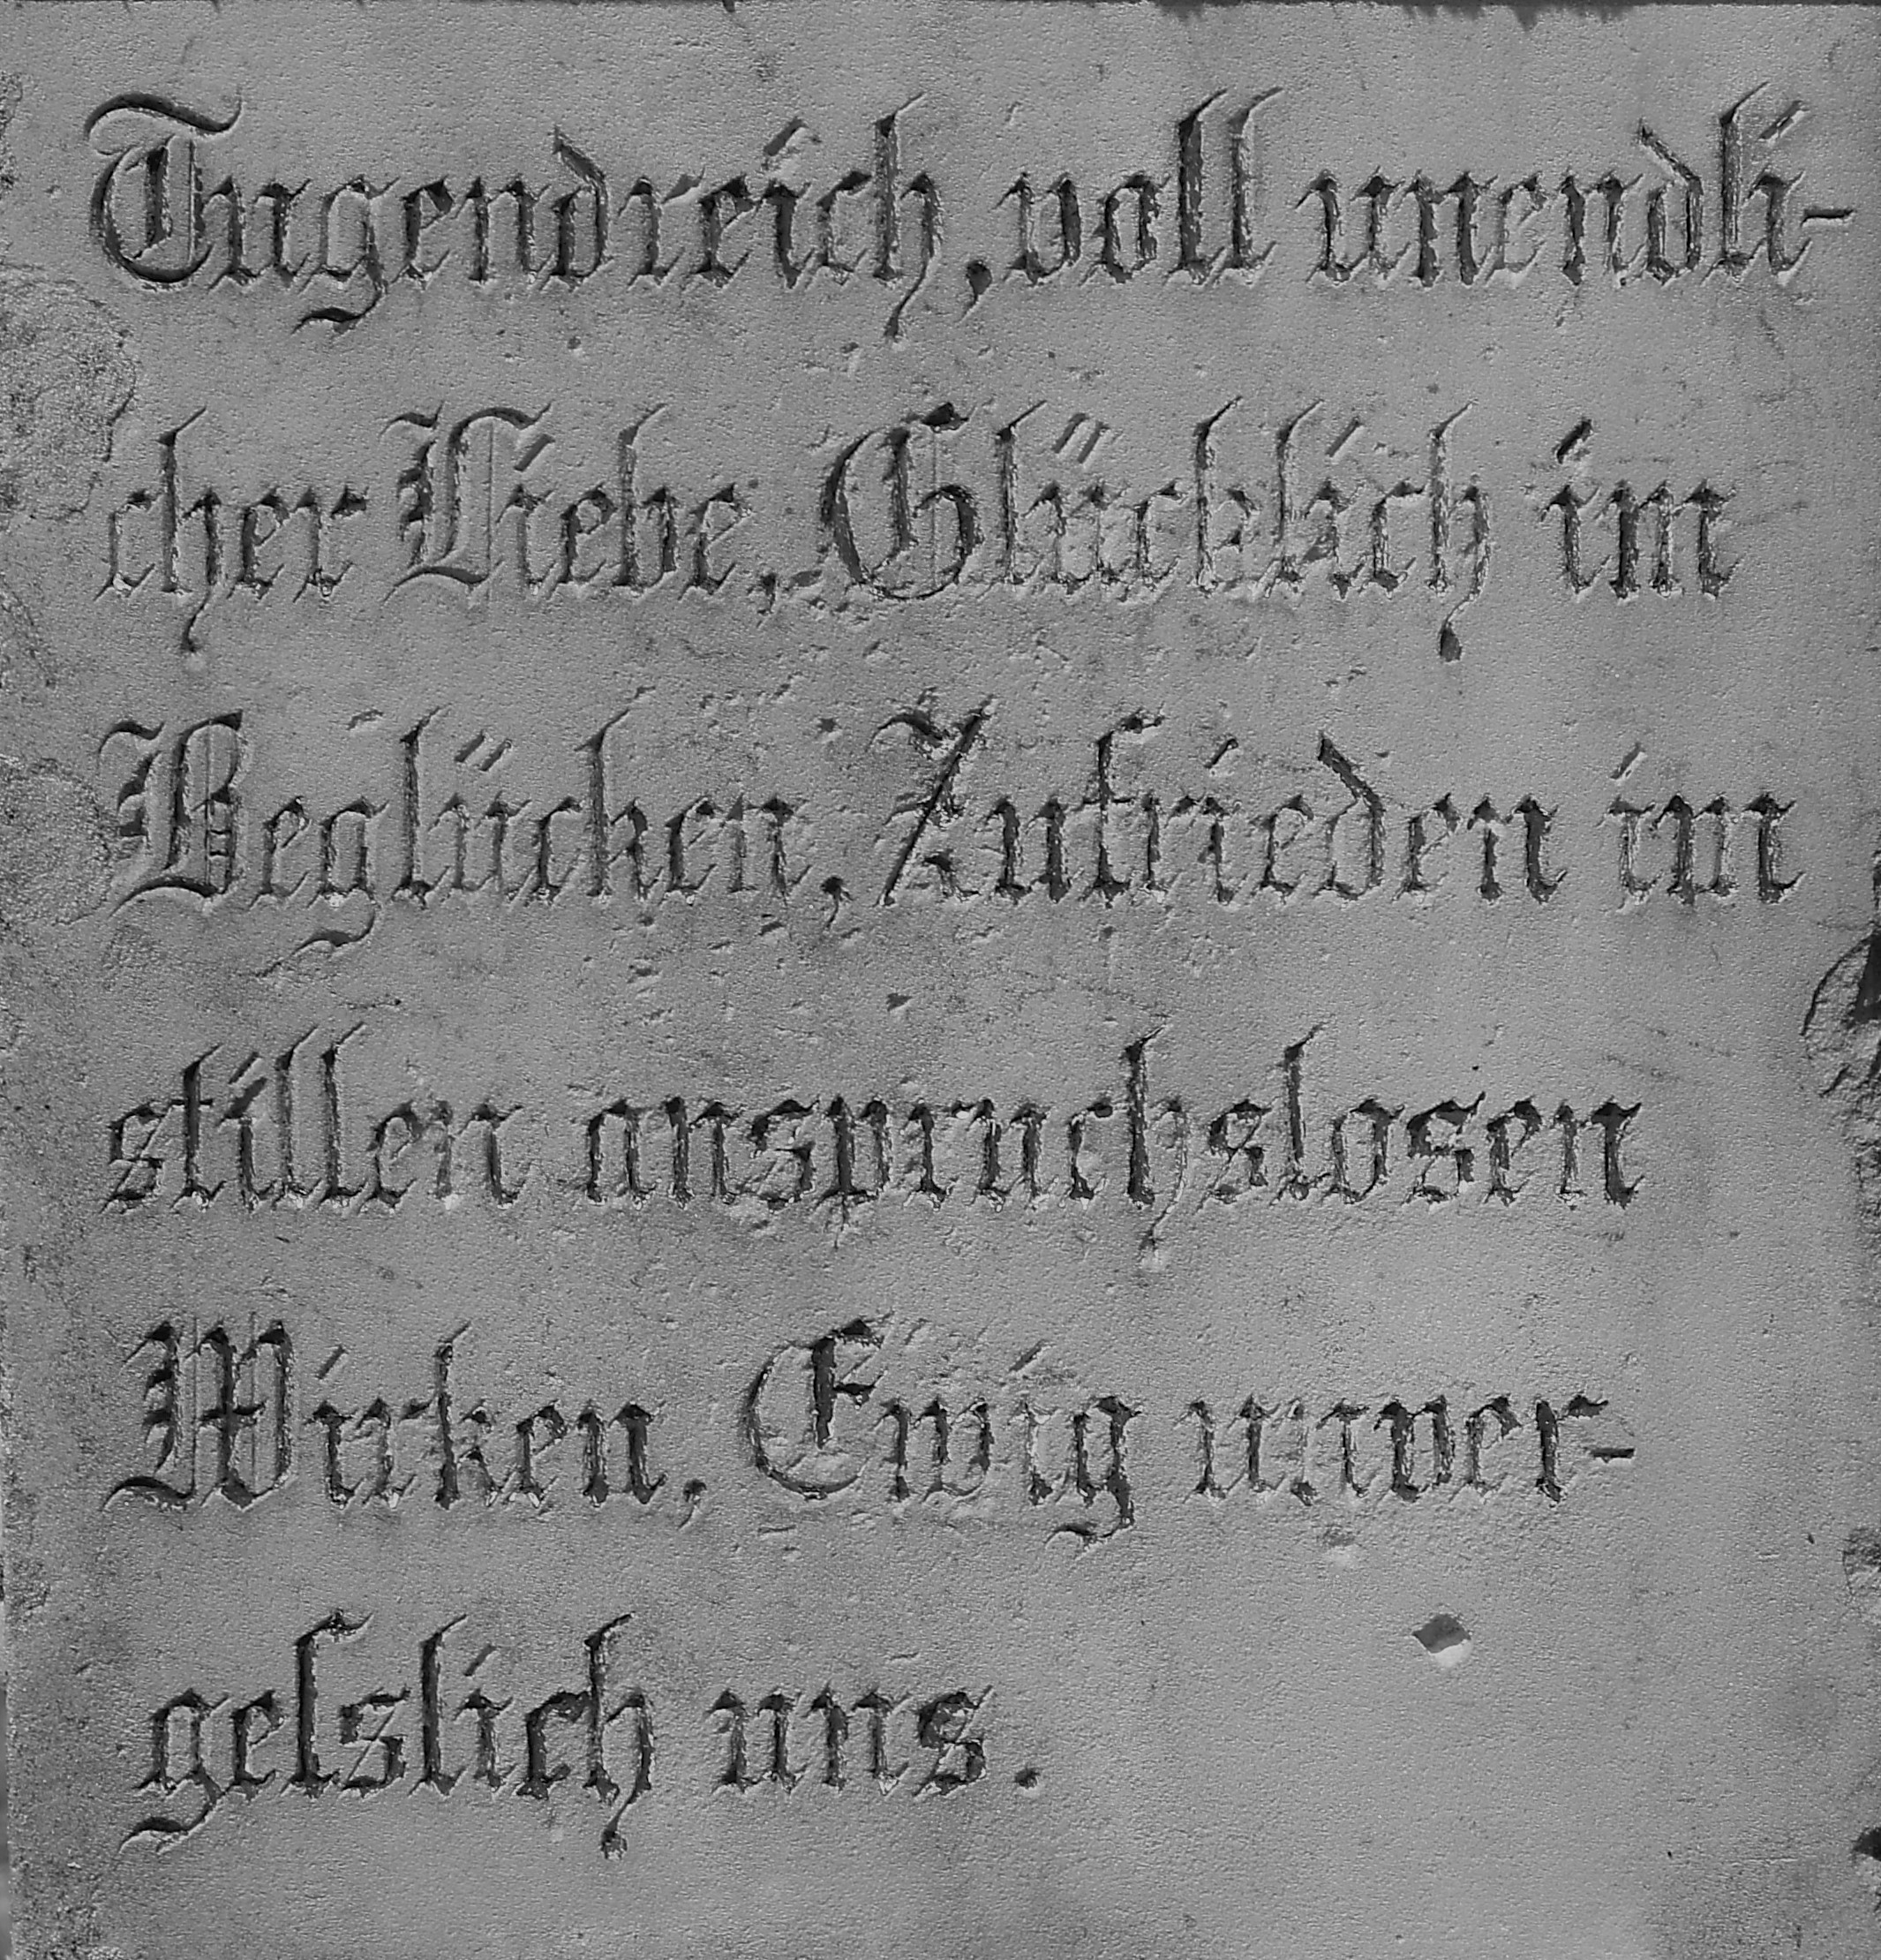 Tugendreich, voll unendli-
cher Liebe, Glücklich im
Beglücken, Zufrieden im
stillen anspruchslosen
Wirken, Ewig unver-
geſslich uns.